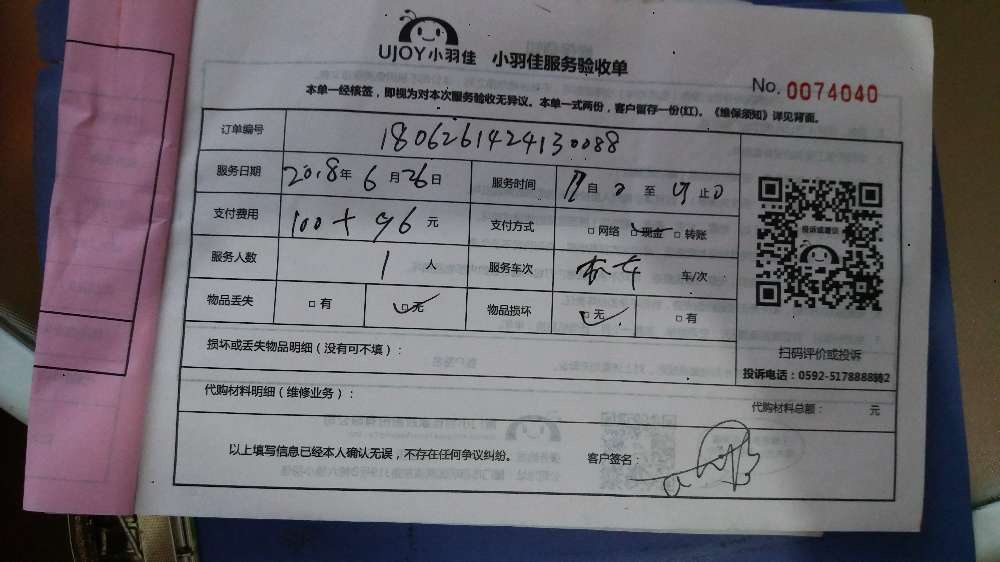 UJOY小羽佳 小羽佳服务验收单
No. 0074040
本单一经核签，即视为对本次服务验收无异议。本单一式两份，客户留存一份(红)。《维保须知》详见背面。
订单编号 1806261424130088
服务日期 2018年 6月26日 服务时间 自 至 止
支付费用 100+96 元 支付方式 □网络 □现金 □转账
投诉或建议
服务人数 1 人 服务车次 车/次
物品丢失 □有 □无 物品损坏 □无 □有
扫码评价或投诉
损坏或丢失物品明细（没有可不填）：
投诉电话：0592-5178888转2
代购材料明细（维修业务）： 代购材料总额： 元
以上填写信息已经本人确认无误，不存在任何争议纠纷。 客户签名：